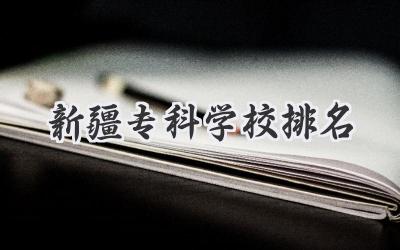 新疆专科学校排名